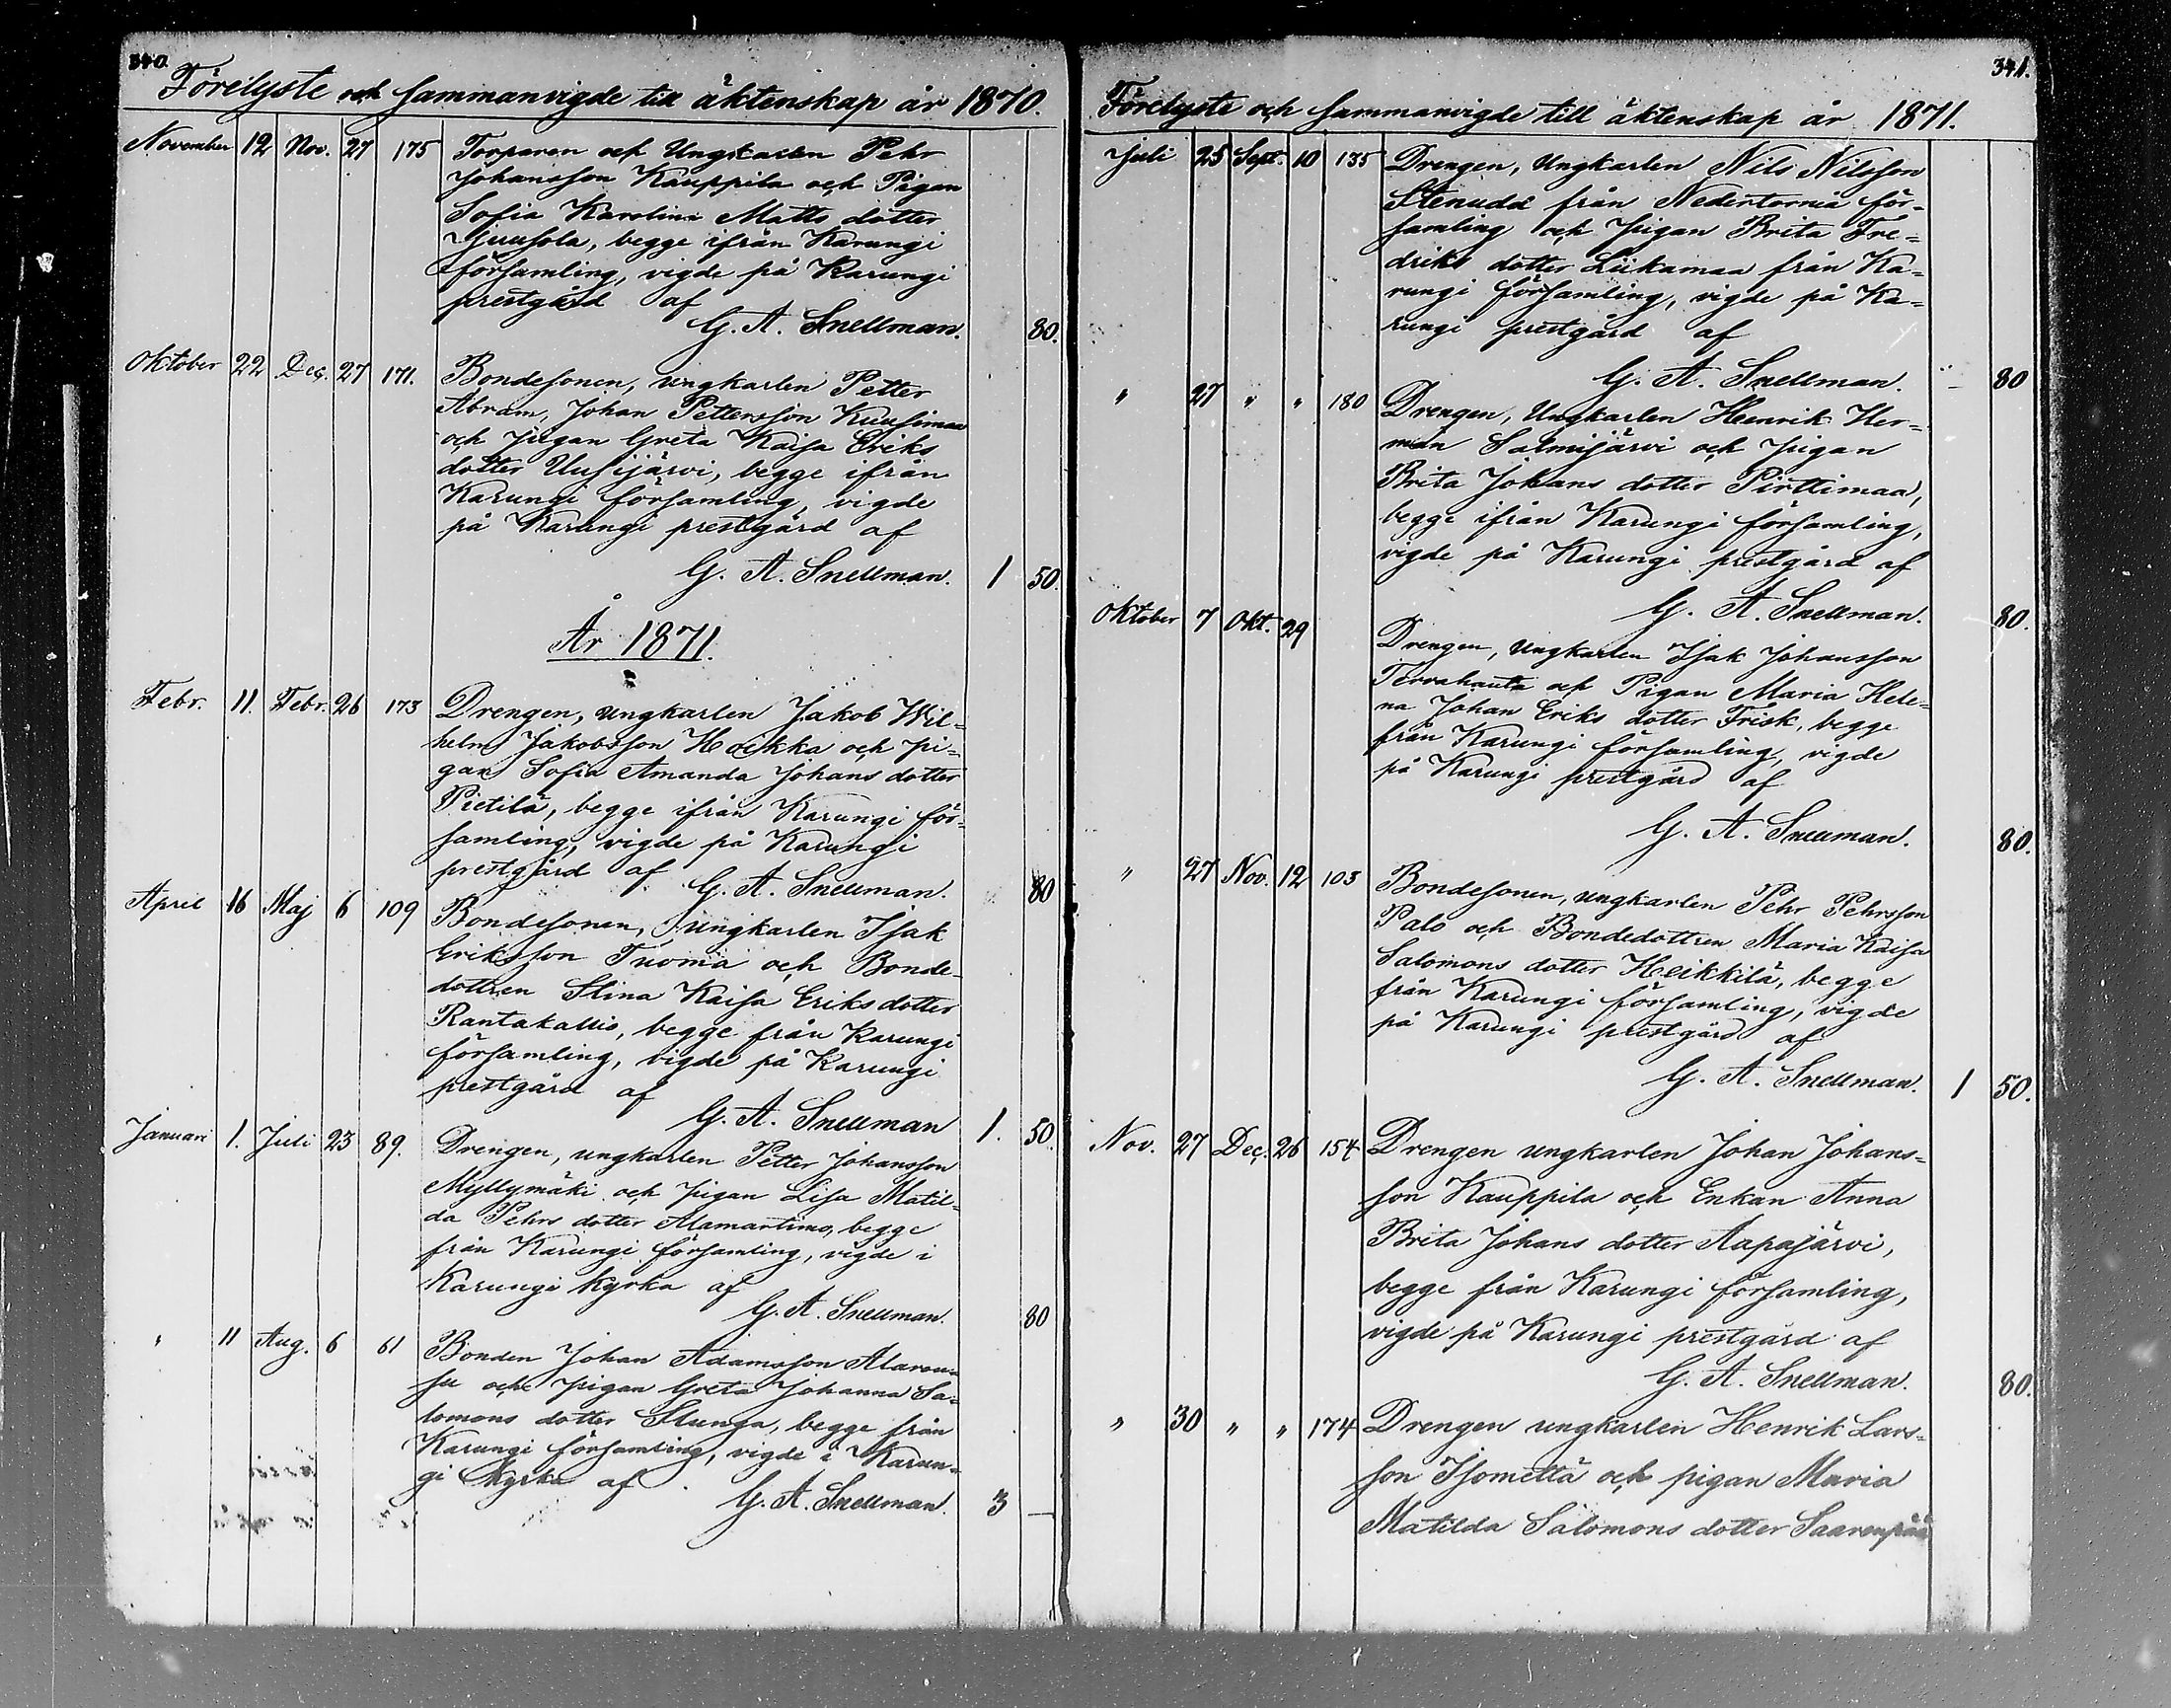 340.
Förelyste och sammanvigde till äktenskap år 1870.
November 12 Nov. 27 175 Torparen och Ungkarlen Pehr
Johansson Kauppila och Pigan
Sofia Karolina Matts dotter
begge ifrån Karungi
församling, vigde på Karungi
prestgård af
G. A. Snellman. 80.
Oktober 22 Dec. 27 171. Bondesonen, ungkarlen Petter
Abram, Johan Pettersson Kuusimaa
och pigan Greta Kaisa Eriks
dotter Uusijärvi, begge ifrån
Karungi församling, vigde
på Karungi prestgård af
G. A. Snellman. 1 50.
År 1871.
Febr. 11. Febr. 26 173 Drengen, ungkarlen Jakob Wil-
helm Jakobsson Hoikka och pi-
gan Sofia Amanda Johans dotter
Pietilä, begge ifrån Karungi för-
samling, vigde på Karungi
prestgård af
G. A. Snellman. 80
April 16 Maj 6 109 Bondesonen, ungkarlen Isak
Eriksson Tuoma och Bonde-
dottren Stina Kaisa Eriks dotter
Rantakallio, begge från Karungi
församling, vigde på Karungi
prestgård af
G. A. Snellman 1. 50
Januari 1. Juli 23 89. Drengen, ungkarlen Petter Johansson
Myllymäki och pigan Lisa Matil-
da Pehrs dotter Alamartimo, begge
från Karungi församling, vigde i
Karungi kyrka af
G. A. Snellman. 80
" 11 Aug. 6 61 Bonden Johan Adamsson
och pigan Greta Johanna Sa-
lomons dotter Stunga, begge från
Karungi församling, vigde i Karun-
gi kyrka af
G. A. Snellman. 3 —
341.
Förelyste och sammanvigde till äktenskap år 1871.
Juli 25 Sept. 10 135 Drengen, Ungkarlen Nils Nilsson
Stenudd från Nedertorneå för-
samling och pigan Brita Fre-
driks dotter Liikamaa från Ka-
rungi församling, vigde på Ka-
rungi prestgård af
G. A. Snellman. 80
" 27 " " 180 Drengen, Ungkarlen Henrik Her-
man Salmijärvi och pigan
Brita Johans dotter Pirttimaa,
begge ifrån Karungi församling,
vigde på Karungi prestgård af
G. A. Snellman. 80.
Oktober 7 Okt. 29 Drengen, ungkarlen Isak Johansson
Tervahauta och Pigan Maria Hele-
na Johan Eriks dotter Frisk, begge
från Karungi församling, vigde
på Karungi prestgård af
G. A. Snellman. 80.
" 27 Nov. 12 103 Bondesonen, ungkarlen Pehr Pehrsson
Palo och Bondedottren Maria Kaisa
Salomons dotter Heikkilä, begge
från Karungi församling, vigde
på Karungi prestgård af
G. A. Snellman. 1 50.
Nov. 27 Dec. 26 154 Drengen ungkarlen Johan Johans-
son Kauppila och Enkan Anna
Brita Johans dotter Aapajärvi,
begge från Karungi församling,
vigde på Karungi prestgård af
G. A. Snellman. 80.
" 30 " " 174 Drengen ungkarlen Henrik Lars-
son Isometsä och pigan Maria
Matilda Salomons dotter Saarenpää